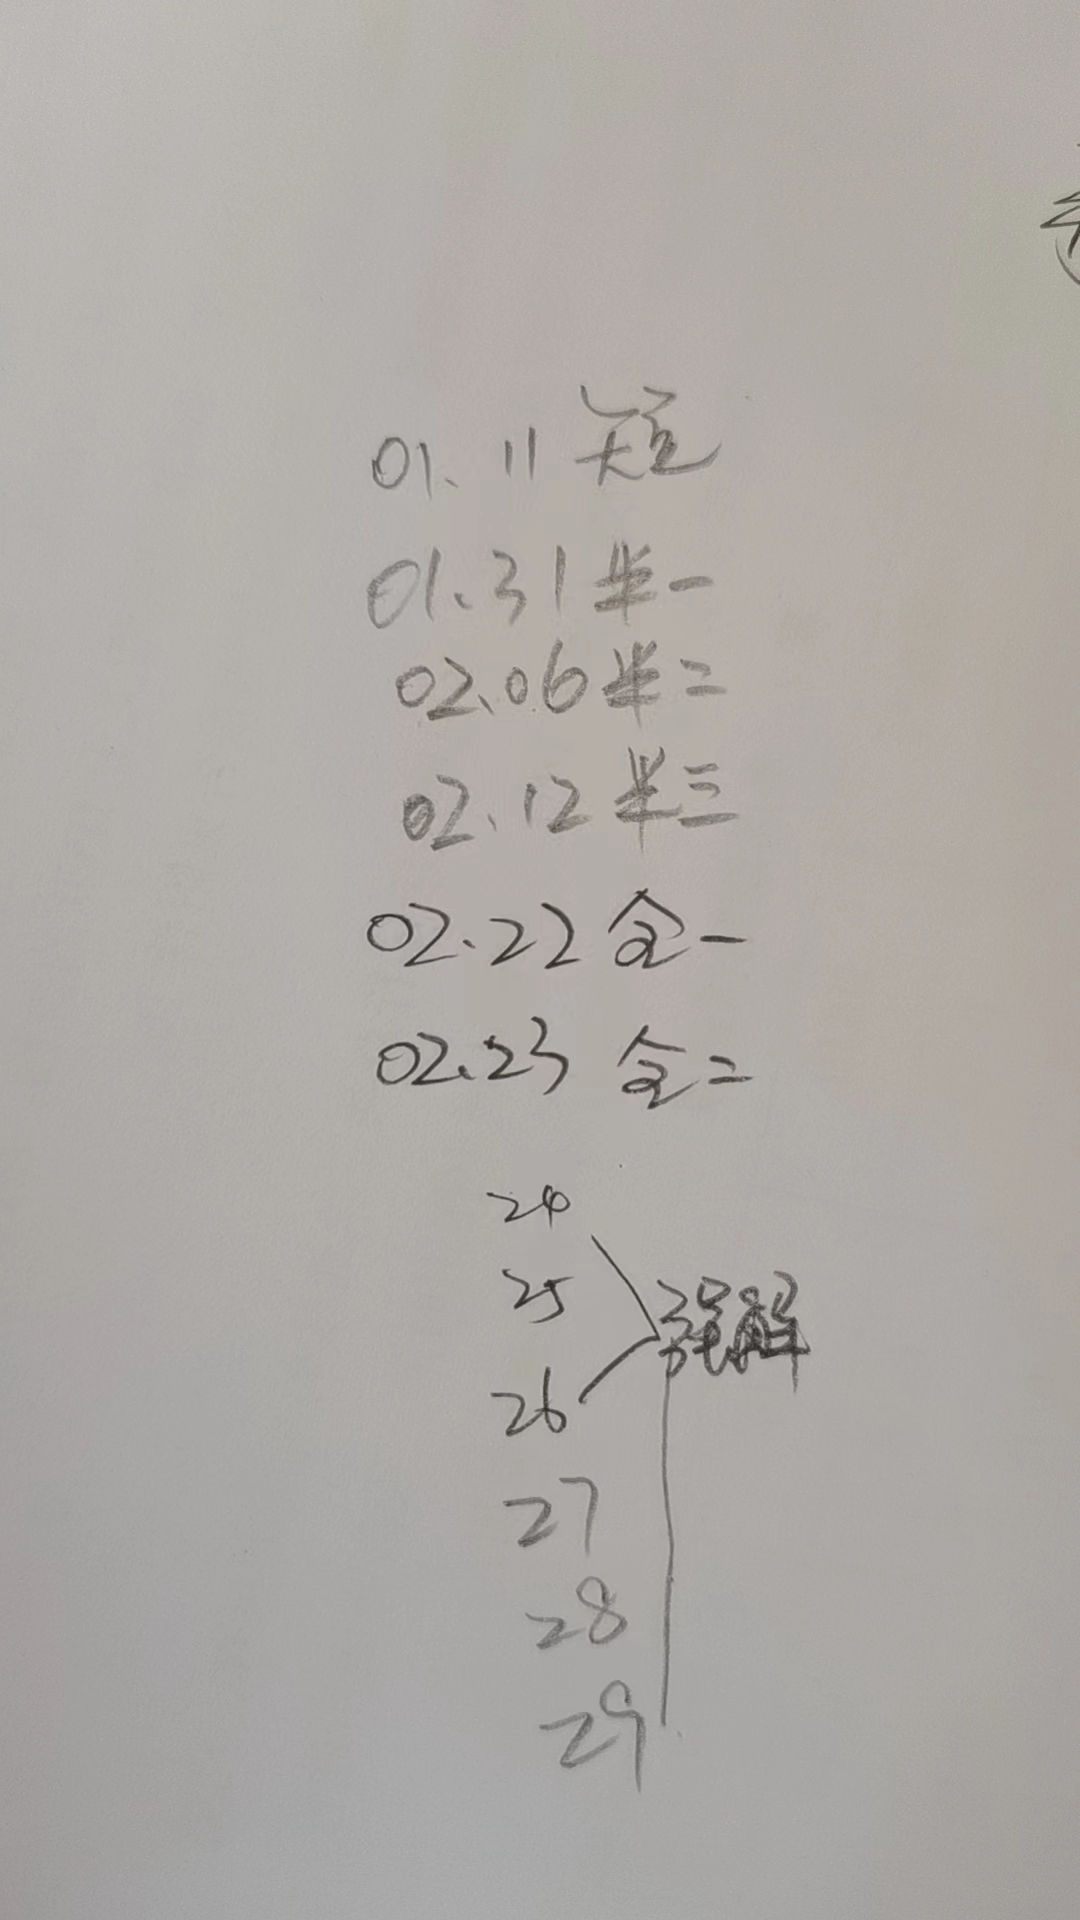 01.11 短
01.31 半一
02.06 半二
02.12 半三
02.22 全一
02.23 全二
24
25
强解
26
27
28
29